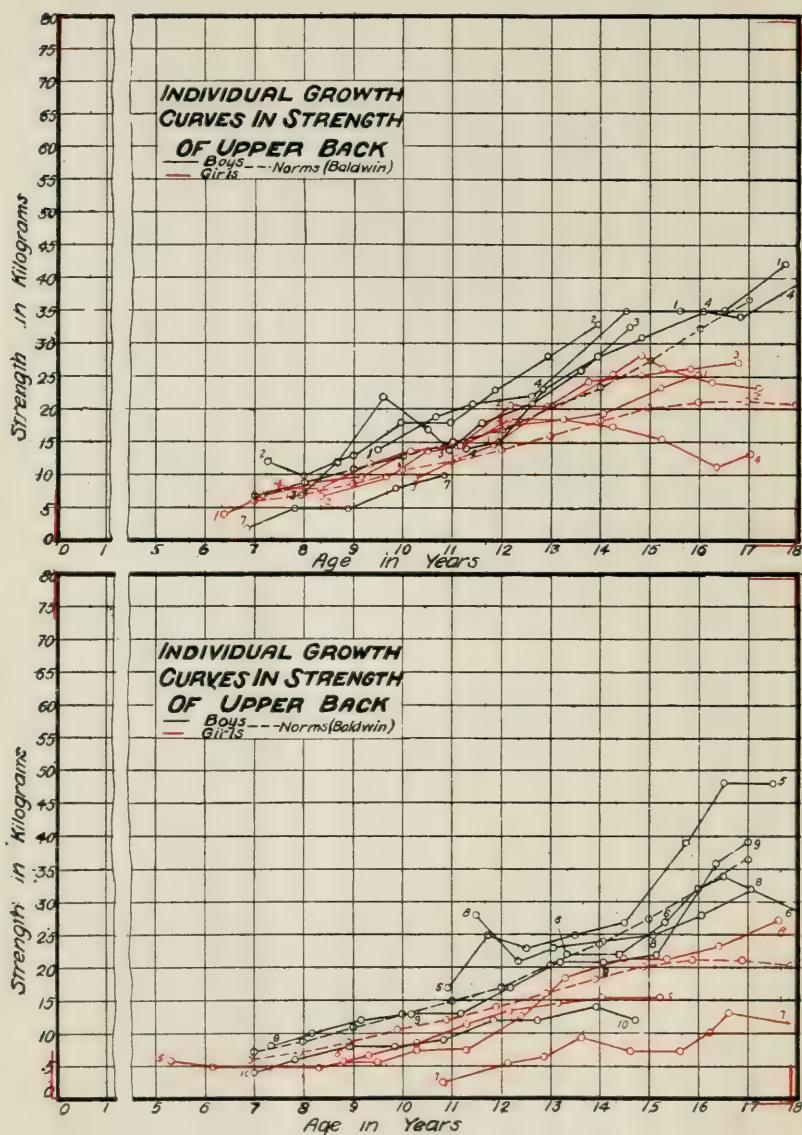 80
75
70
65
60
55
50
45
40
35
30
25
20
15
10
5
0
Strength in Kilograms
INDIVIDUAL GROWTH
CURVES IN STRENGTH
OF UPPER BACK
Boys --- Norms (Baldwin)
Girls
0 1 5 6 7 8 9 10 11 12 13 14 15 16 17 18
Age in Years
80
75
70
65
60
55
50
45
40
35
30
25
20
15
10
5
0
Strength in Kilograms
INDIVIDUAL GROWTH
CURVES IN STRENGTH
OF UPPER BACK
Boys --- Norms (Baldwin)
Girls
0 1 5 6 7 8 9 10 11 12 13 14 15 16 17 18
Age in Years